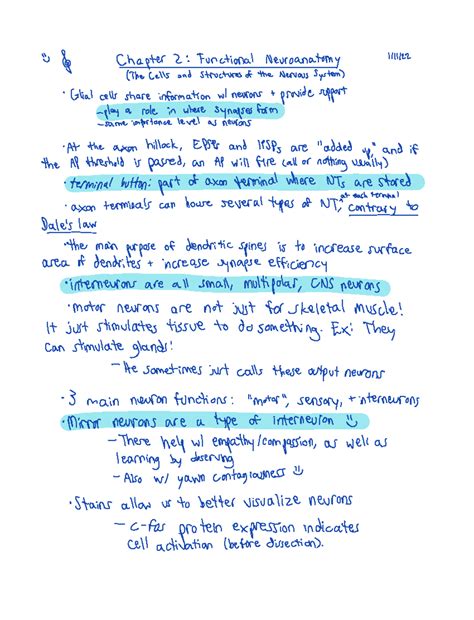 Chapter 2: Functional Neuroanatomy 1/11/22
(The Cells and Structures of the Nervous System)
· Glial cells share information w/ neurons + provide support
- play a role in where synapses form
- same importance level as neurons
· At the axon hillock, EPSPs and IPSPs are "added up," and if
the AP threshold is passed, an AP will fire (all or nothing usually)
· terminal button: part of axon terminal where NTs are stored
· axon terminals can have several types of NT, at each terminal contrary to
Dale's law
· the main purpose of dendritic spines is to increase surface
area of dendrites + increase synapse efficiency
· interneurons are all small, multipolar, CNS neurons
· motor neurons are not just for skeletal muscle!
It just stimulates tissue to do something. Ex: They
can stimulate glands!
- He sometimes just calls these output neurons
· 3 main neuron functions: "motor", sensory, + interneurons
· Mirror neurons are a type of interneuron
- These help w/ empathy/compassion, as well as
learning by observing
- Also w/ yawn contagiousness
· Stains allow us to better visualize neurons
- c-fos protein expression indicates
cell activation (before dissection).